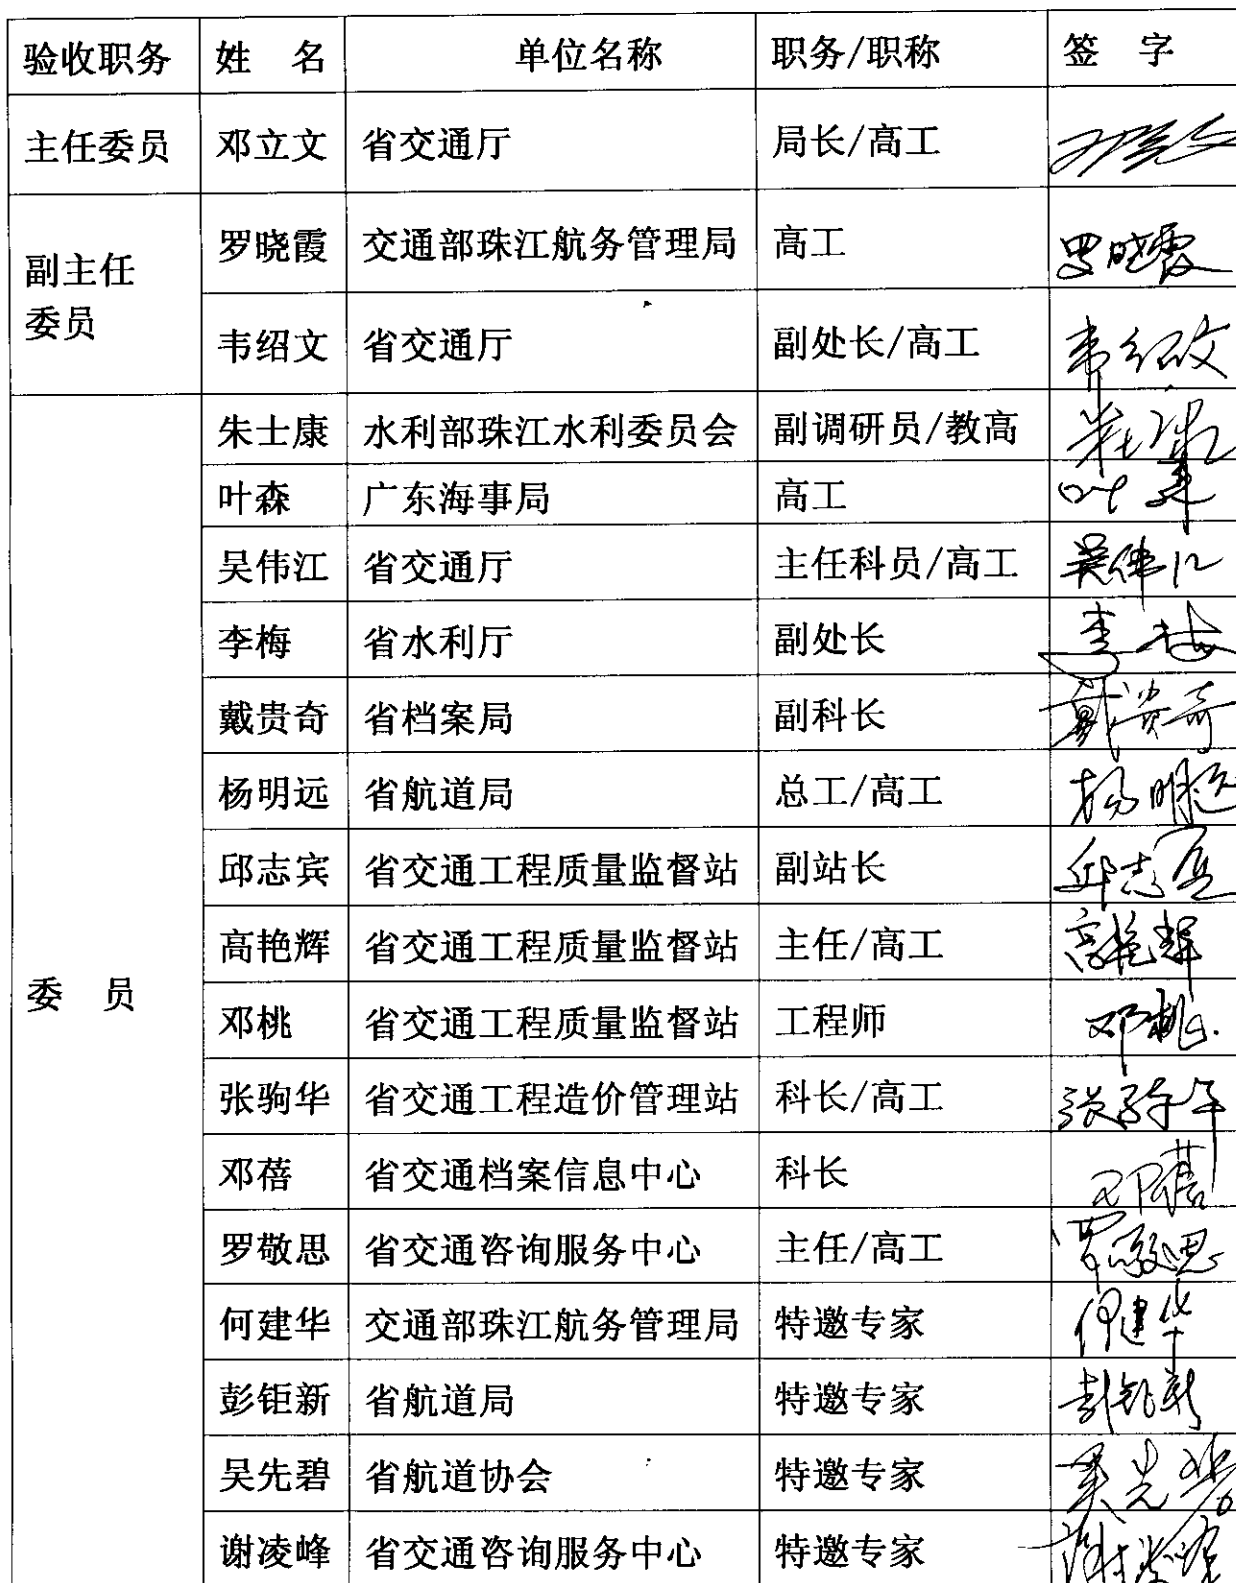 验收职务 姓 名 单位名称 职务/职称 签 字
主任委员 邓立文 省交通厅 局长/高工 邓立文
副主任
委员
罗晓霞 交通部珠江航务管理局 高工 罗晓霞
韦绍文 省交通厅 副处长/高工 韦绍文
委 员
朱士康 水利部珠江水利委员会 副调研员/教高 朱士康
叶森 广东海事局 高工 叶森
吴伟江 省交通厅 主任科员/高工 吴伟江
李梅 省水利厅 副处长 李梅
戴贵奇 省档案局 副科长 戴贵奇
杨明远 省航道局 总工/高工 杨明远
邱志宾 省交通工程质量监督站 副站长 邱志宾
高艳辉 省交通工程质量监督站 主任/高工 高艳辉
邓桃 省交通工程质量监督站 工程师 邓桃
张驹华 省交通工程造价管理站 科长/高工 张驹华
邓蓓 省交通档案信息中心 科长 邓蓓
罗敬思 省交通咨询服务中心 主任/高工 罗敬思
何建华 交通部珠江航务管理局 特邀专家 何建华
彭钜新 省航道局 特邀专家 彭钜新
吴先碧 省航道协会 特邀专家 吴先碧
谢凌峰 省交通咨询服务中心 特邀专家 谢凌峰